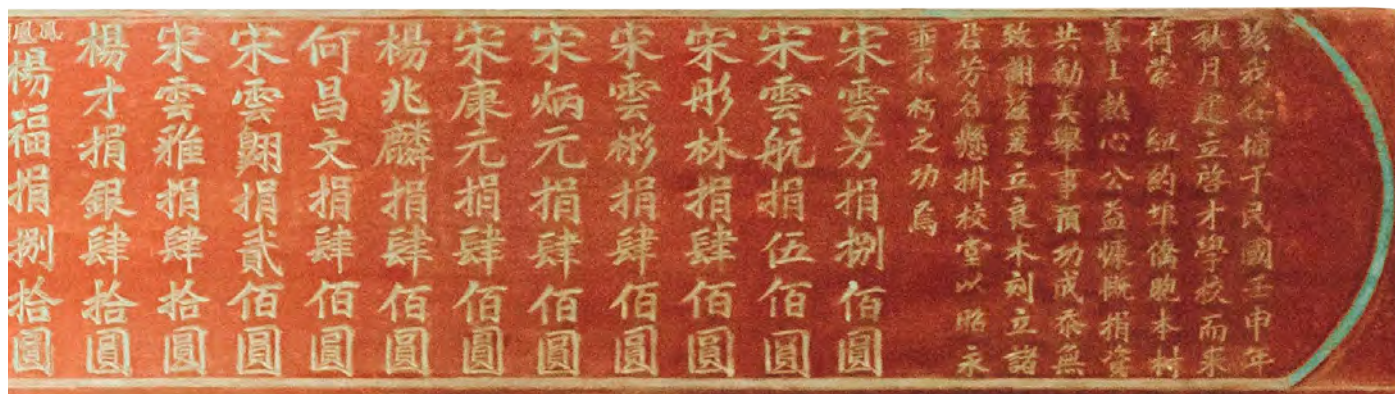 我谷埔于民國壬申年
秋月建立啓才學校而來
荷蒙 紐約埠僑胞本村
善士熱心公益慷慨捐資
共勷美舉事功成忝無
致謝茲爰立良木刻立諸
君芳名懸掛校堂以昭永
垂不朽之功焉
宋雲芳捐捌佰圓
宋雲航捐伍佰圓
宋彤林捐肆佰圓
宋雲彬捐肆佰圓
宋炳元捐肆佰圓
宋康元捐肆佰圓
楊兆麟捐肆佰圓
何昌文捐肆佰圓
宋雲翺捐貳佰圓
宋雲雅捐肆拾圓
楊才捐銀肆拾圓
楊福捐捌拾圓